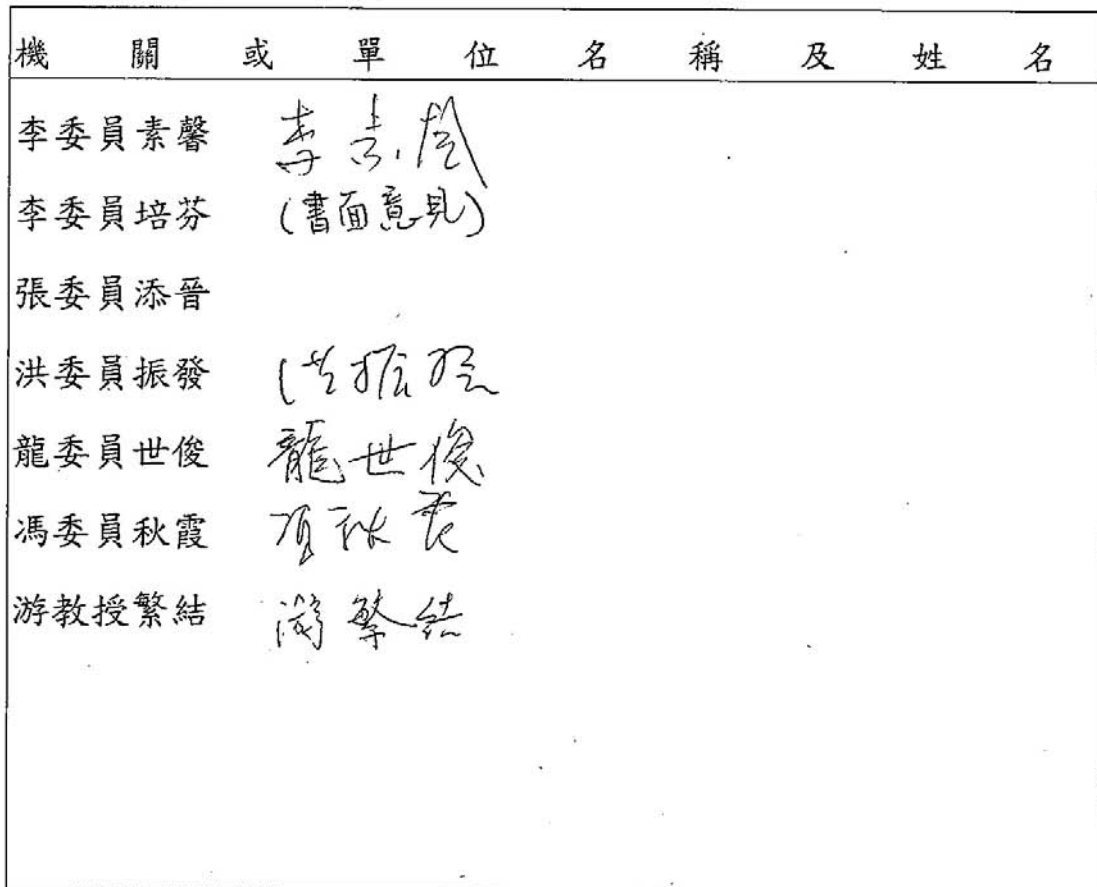 機關或單位名稱及姓名
李委員素馨 李素馨
李委員培芬 (書面意見)
張委員添晉
洪委員振發 洪振發
龍委員世俊 龍世俊
馮委員秋霞 馮秋霞
游教授繁結 游繁結